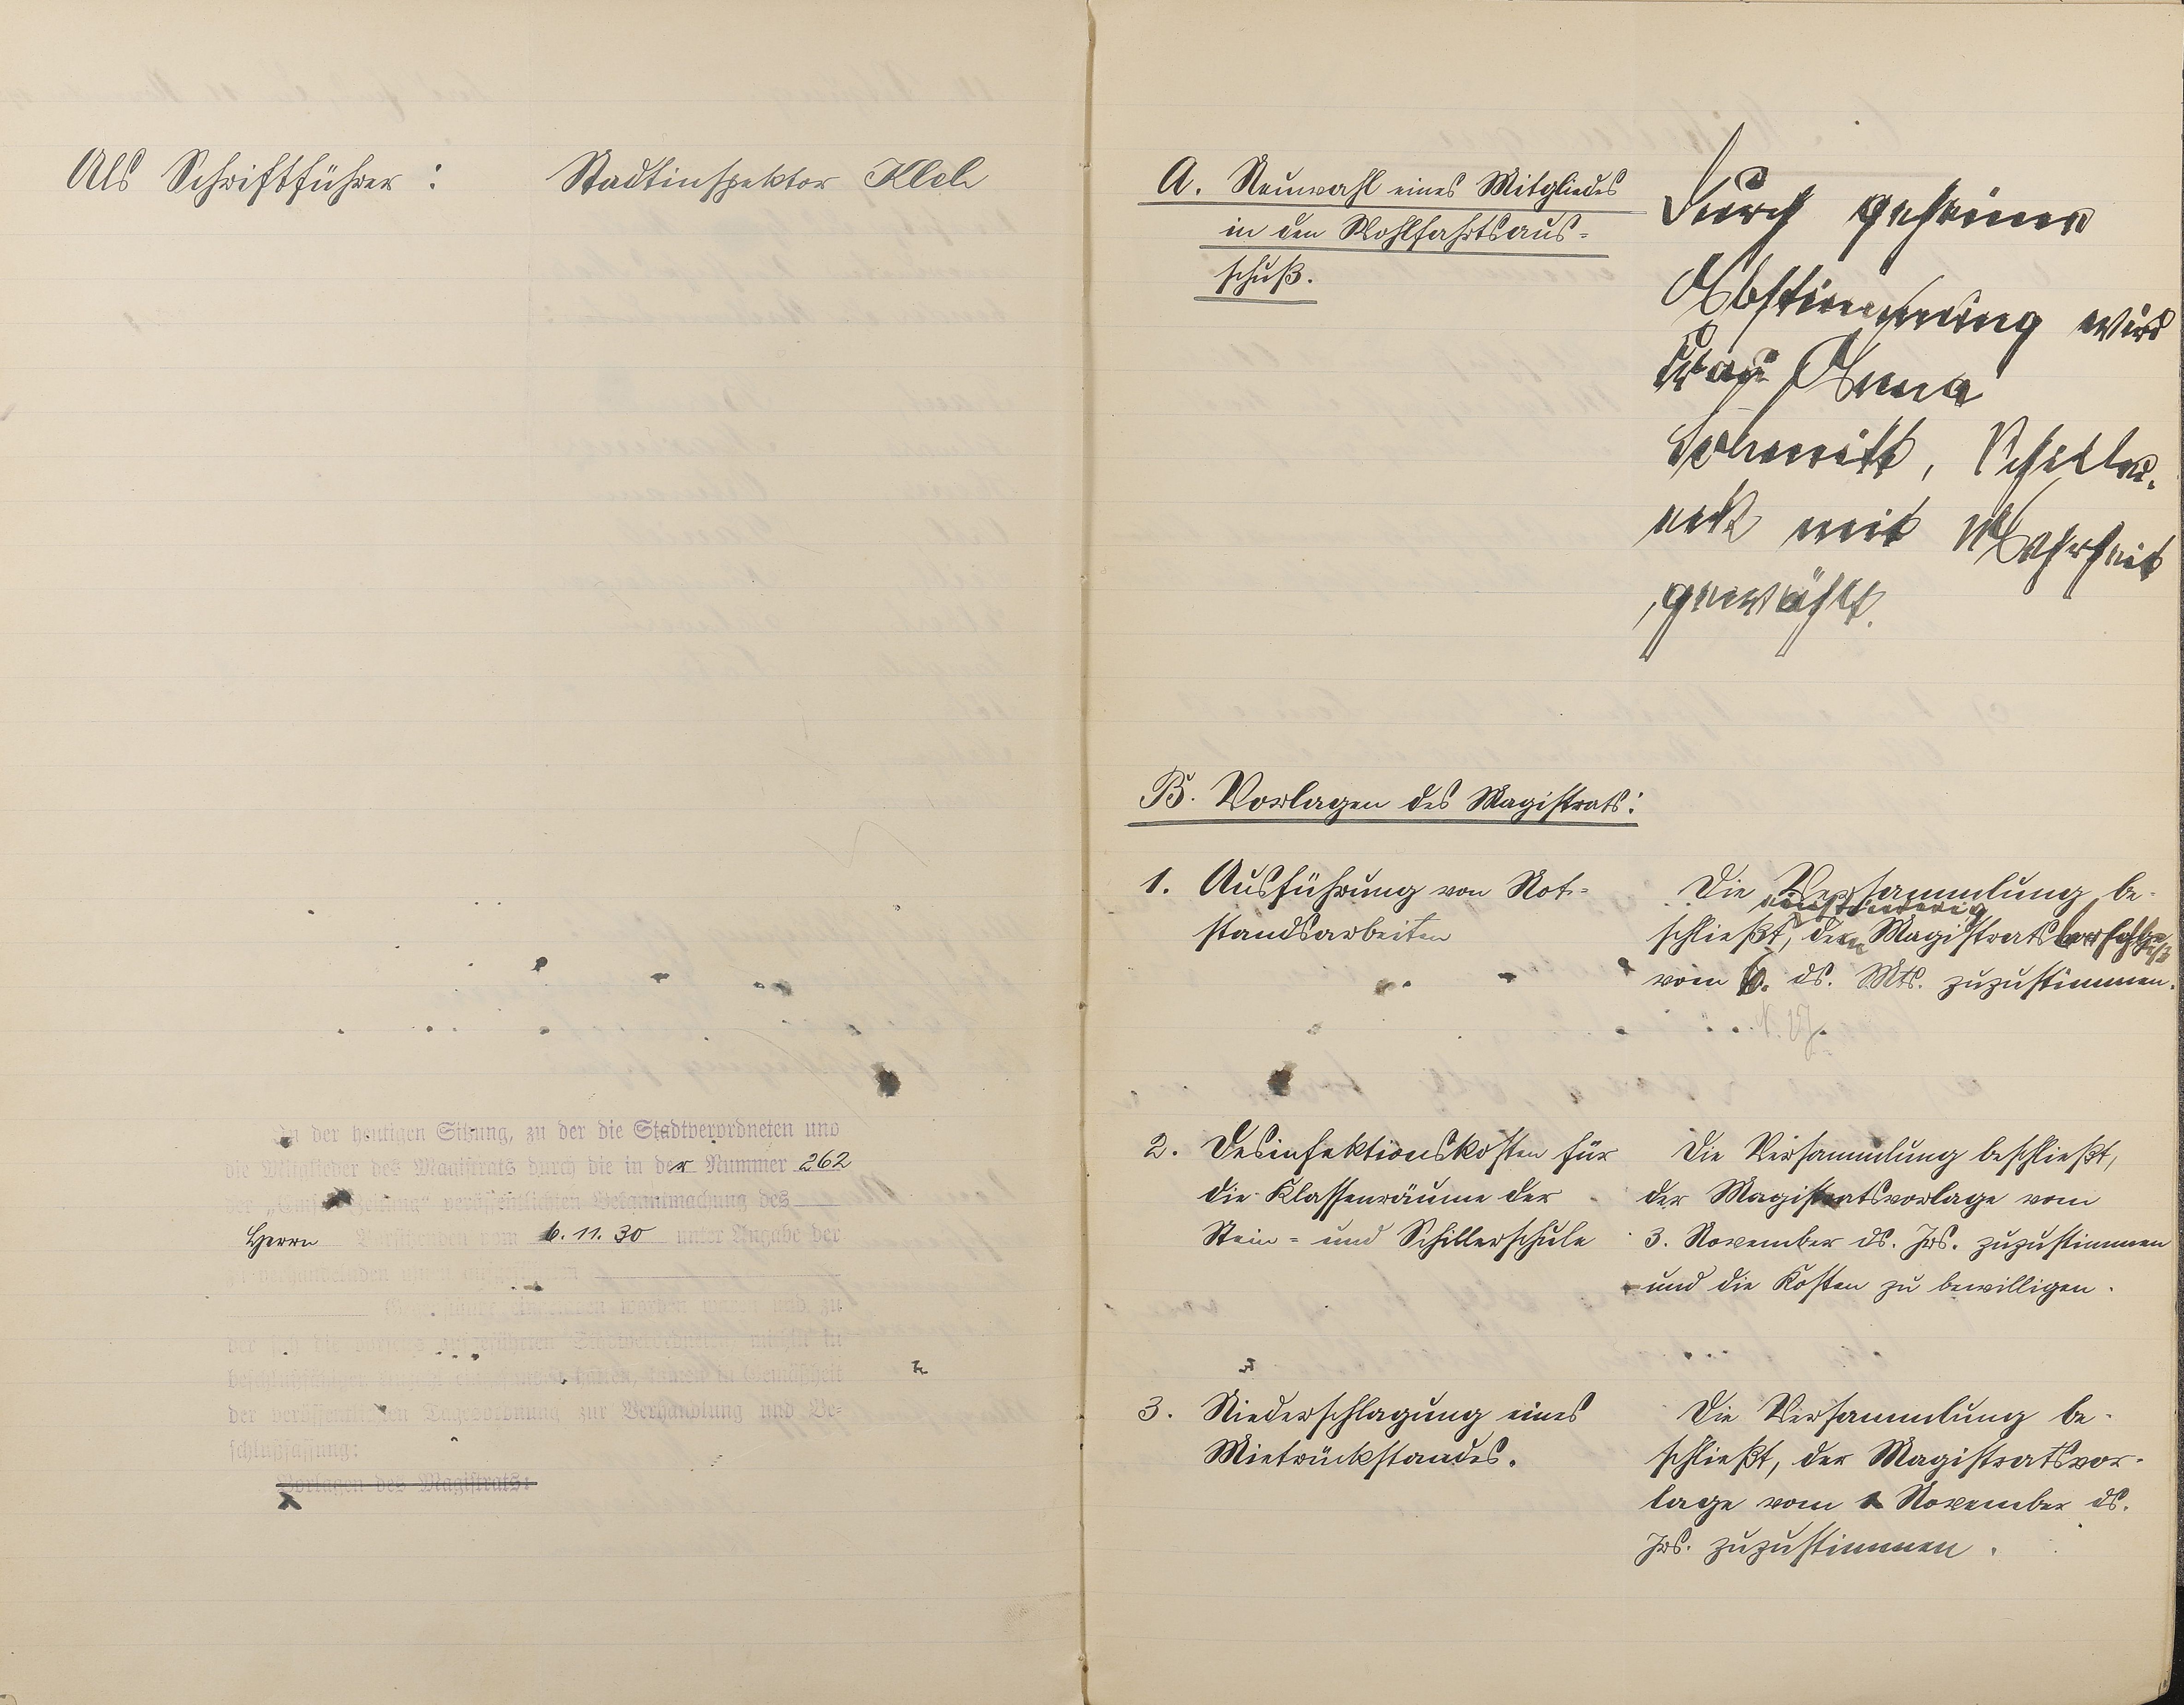 Als Schriftführer : Stadtinspektor
In der heutigen Sitzung, zu der die Stadtverordneten und
die Mitglieder des Magistrats durch die in der Nummer 262
der „Emser Zeitung“ veröffentlichten Bekanntmachung des
Herrn Vorsitzenden vom 6. 11. 30 unter Angabe der
worden waren und zu
der sich die Stadtverordneten in
beschlußfähiger hatten, kamen in Gemäßheit
der veröffentlichten Tagesordnung zur Verhandlung und Be-
schlußfassung:
Vorlagen des Magistrats:
A. Neuwahl eines Mitgliedes
in den Wohlfahrtsaus-
schuß.
Durch geheime
Abstimmung wird
Frau Anna
Schmitt,
mit Mehrheit
gewählt.
B. Vorlagen des Magistrats:
1. Ausführung von Not-
standsarbeiten
Die Versammlung be-
einstimmig
schließt, dem Magistrats
vom 6. ds. Mts. zuzustimmen.
2. Desinfektionskosten für
die Klassenräume der
Stein- und Schillerschule
Die Versammlung beschließt,
der Magistratsvorlage vom
3. November ds. Jrs. zuzustimmen
und die Kosten zu bewilligen.
3. Niederschlagung eines
Mietrückstandes.
Die Versammlung be-
schließt, der Magistratsvor-
lage vom 1 November ds.
Jrs. zuzustimmen.